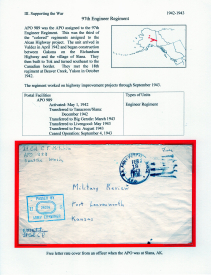 III. Supporting the War
1942-1943
97th Engineer Regiment
APO 989 was the APO assigned to the 97th
Engineer Regiment. This was the third of
the "colored" regiments assigned to the
Alcan Highway project. The unit arrived in
Valdez in April 1942 and began construction
between Gakona on the Richardson
Highway and the village of Slana. They
then built to Tok and turned southeast to the
Canadian border. They met the 18th
regiment at Beaver Creek, Yukon in October
1942.
The regiment worked on highway improvement projects through September 1943.
Postal Facilities
Types of Units
APO 989
Activated: May 1, 1942
Engineer Regiment
Transferred to Tanacross/Nome:
December 1942
Transferred to Big Gerstle: March 1943
Transferred to Livengood: May 1943
Transferred to Fox: August 1943
Ceased Operation: September 4, 1943
APO 989
Seattle Wash
Free
Military Review
Fort Leavenworth
Kansas
Free letter rate cover from an officer when the APO was at Slana, AK.